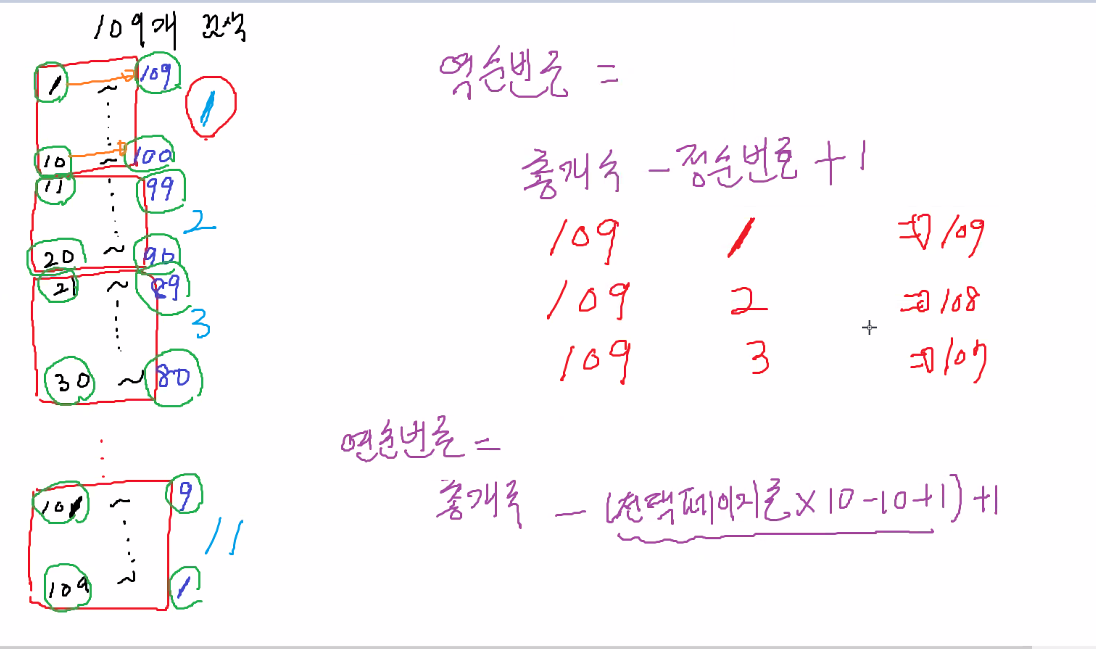 109개 검색
1 ~ 109
1
10 ~ 100
11 99
2
20 ~ 90
21 ~ 89
3
30 ~ 80
101 ~ 9
11
109 ~ 1
역순번호 =
총개수 - 정순번호 + 1
109 1 ⇒ 109
109 2 ⇒ 108
109 3 ⇒ 107
역순번호 =
총개수 - (선택페이지호 × 10 - 10 + 1) + 1